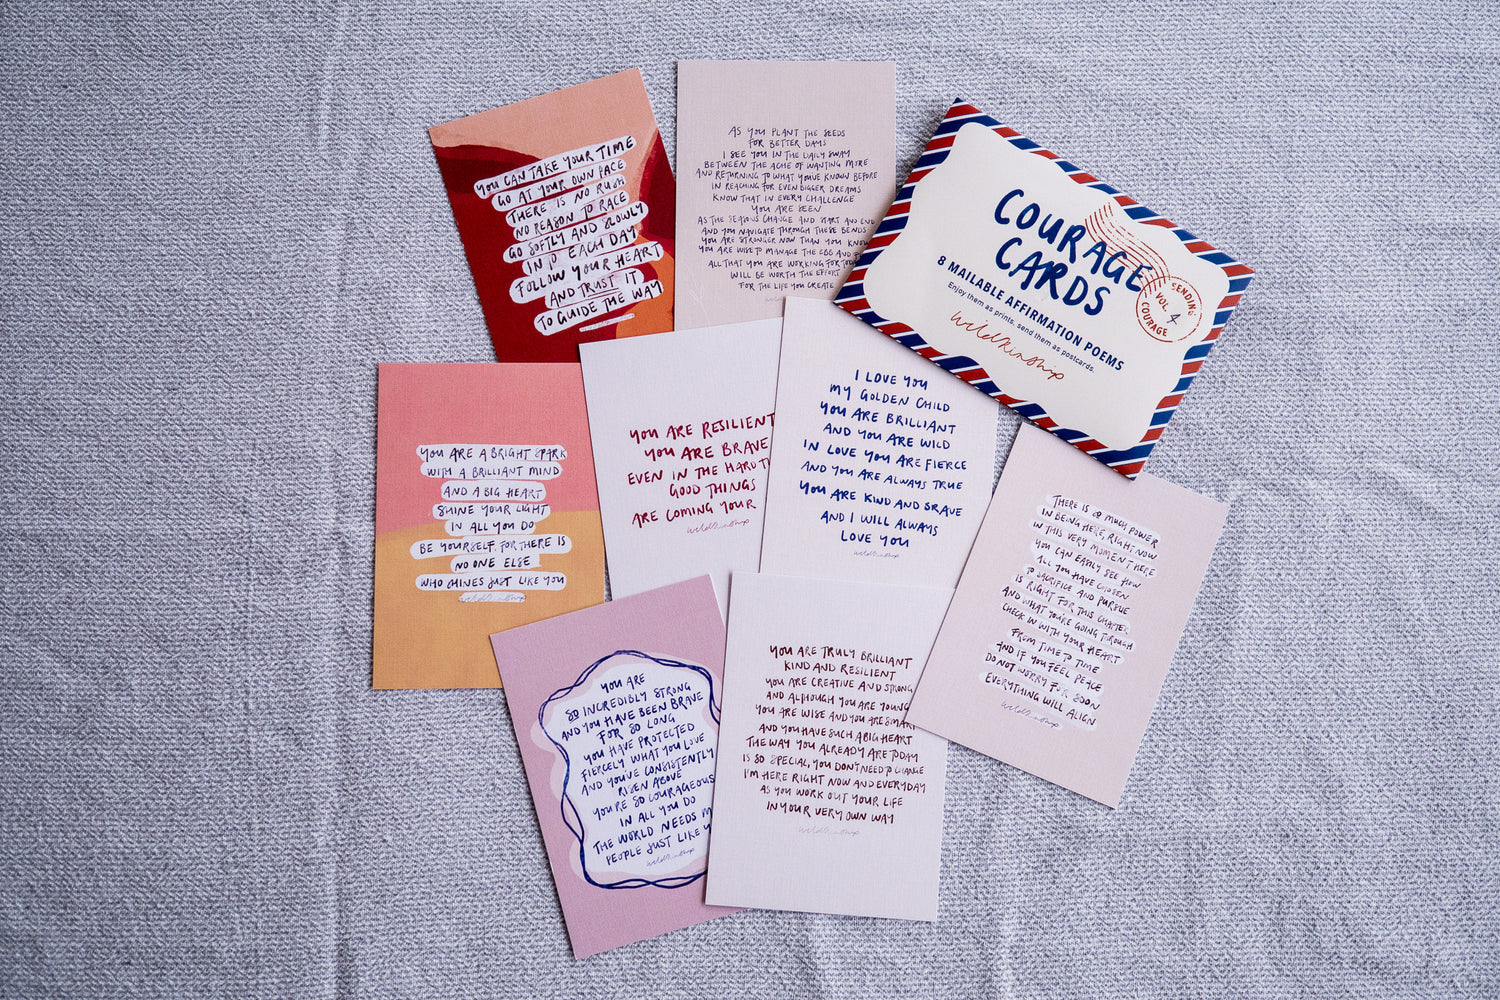 YOU CAN TAKE YOUR TIME
GO AT YOUR OWN PACE
THERE IS NO RUSH
NO REASON TO RACE
GO SOFTLY AND SLOWLY
INTO EACH DAY
FOLLOW YOUR HEART
AND TRUST IT
TO GUIDE THE WAY
AS YOU PLANT THE SEEDS
FOR BETTER DAYS
I SEE YOU IN THE DAILY SWAY
BETWEEN THE ACHE OF WANTING MORE
AND RETURNING TO WHAT YOU'VE KNOWN BEFORE
IN REACHING FOR EVEN BIGGER DREAMS
KNOW THAT IN EVERY CHALLENGE
YOU ARE SEEN
AS THE SEASONS CHANGE AND START AND END
AND YOU NAVIGATE THROUGH THESE BENDS
YOU ARE STRONGER NOW THAN YOU KNOW
YOU ARE WISE TO MANAGE THE EBB AND
ALL THAT YOU ARE WORKING FOR TODAY
WILL BE WORTH THE EFFORT
FOR THE LIFE YOU CREATE
COURAGE
CARDS
8 MAILABLE AFFIRMATION POEMS
Enjoy them as prints, send them as postcards.
wildkinship
SENDING
VOL 4
COURAGE
YOU ARE A BRIGHT SPARK
WITH A BRILLIANT MIND
AND A BIG HEART
SHINE YOUR LIGHT
IN ALL YOU DO
BE YOURSELF, FOR THERE IS
NO ONE ELSE
WHO SHINES JUST LIKE YOU
wildkinship
YOU ARE RESILIENT
YOU ARE BRAVE
EVEN IN THE HARD
GOOD THINGS
ARE COMING YOUR
wildkinship
I LOVE YOU
MY GOLDEN CHILD
YOU ARE BRILLIANT
AND YOU ARE WILD
IN LOVE YOU ARE FIERCE
AND YOU ARE ALWAYS TRUE
YOU ARE KIND AND BRAVE
AND I WILL ALWAYS
LOVE YOU
wildkinship
THERE IS SO MUCH POWER
IN BEING HERE, RIGHT NOW
IN THIS VERY MOMENT HERE
YOU CAN EASILY SEE HOW
ALL YOU HAVE CHOSEN
TO SACRIFICE AND PURSUE
IS RIGHT FOR THIS CHAPTER
AND WHAT YOU'RE GOING THROUGH
CHECK IN WITH YOUR HEART
FROM TIME TO TIME
AND IF YOU FEEL PEACE
DO NOT WORRY FOR SOON
EVERYTHING WILL ALIGN
wildkinship
YOU ARE
SO INCREDIBLY STRONG
AND YOU HAVE BEEN BRAVE
FOR SO LONG
YOU HAVE PROTECTED
FIERCELY WHAT YOU LOVE
AND YOU'VE CONSISTENTLY
RISEN ABOVE
YOU'RE SO COURAGEOUS
IN ALL YOU DO
THE WORLD NEEDS
PEOPLE JUST LIKE
wildkinship
YOU ARE TRULY BRILLIANT
KIND AND RESILIENT
YOU ARE CREATIVE AND STRONG
AND ALTHOUGH YOU ARE YOUNG
YOU ARE WISE AND YOU ARE SMART
AND YOU HAVE SUCH A BIG HEART
THE WAY YOU ALREADY ARE TODAY
IS SO SPECIAL, YOU DON'T NEED TO CHANGE
I'M HERE RIGHT NOW AND EVERYDAY
AS YOU WORK OUT YOUR LIFE
IN YOUR VERY OWN WAY
wildkinship